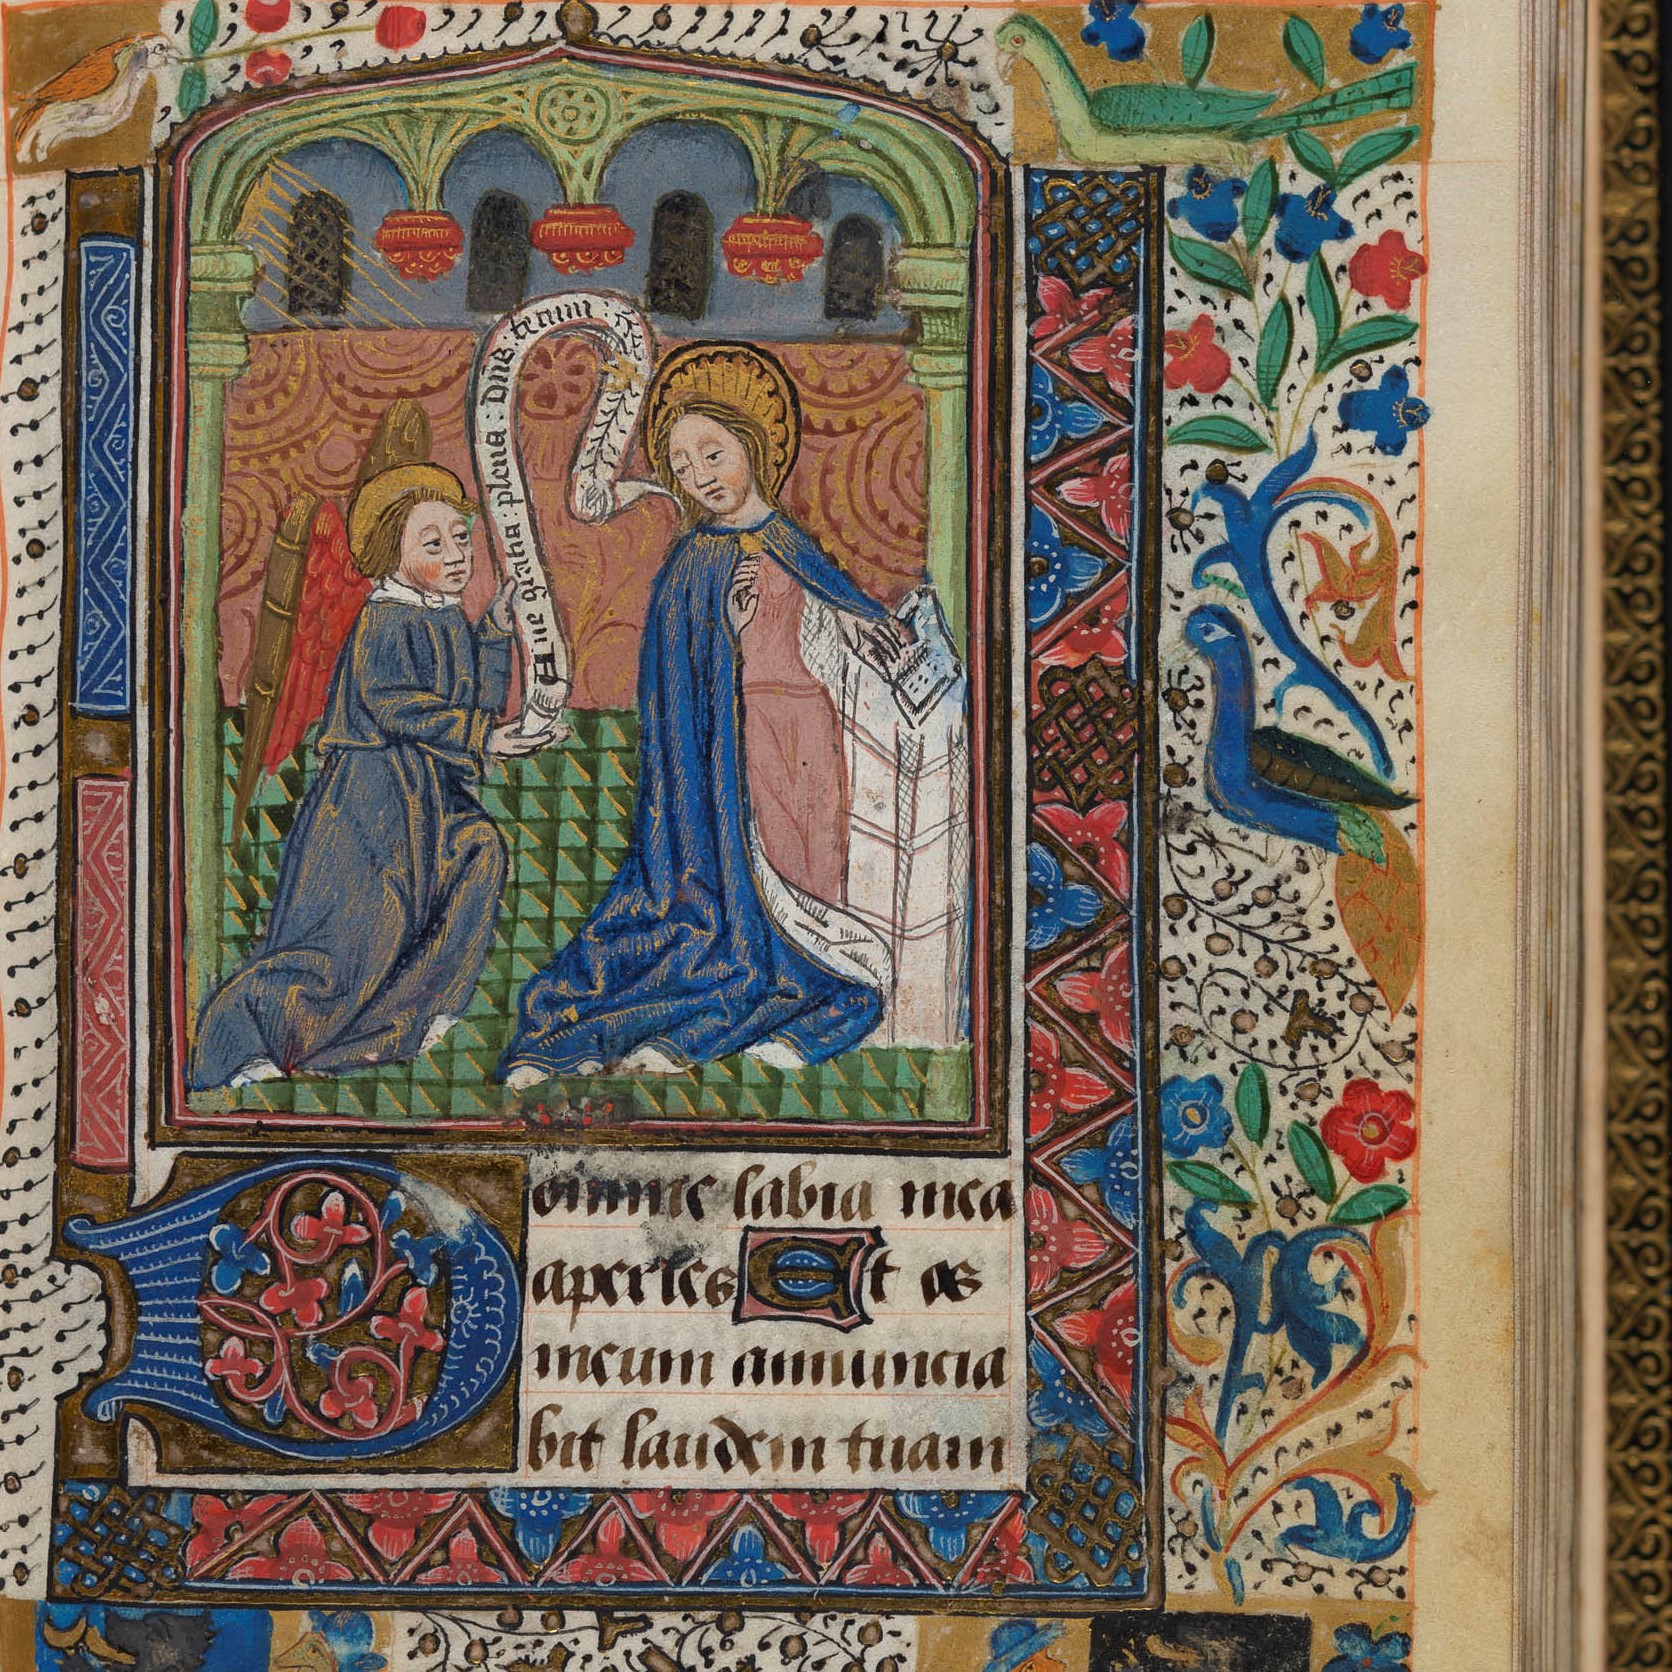 Aue gratia : plena : Dns : tecum :
Domine labia mea
aperies Et os
meum annuncia
bit laudem tuam